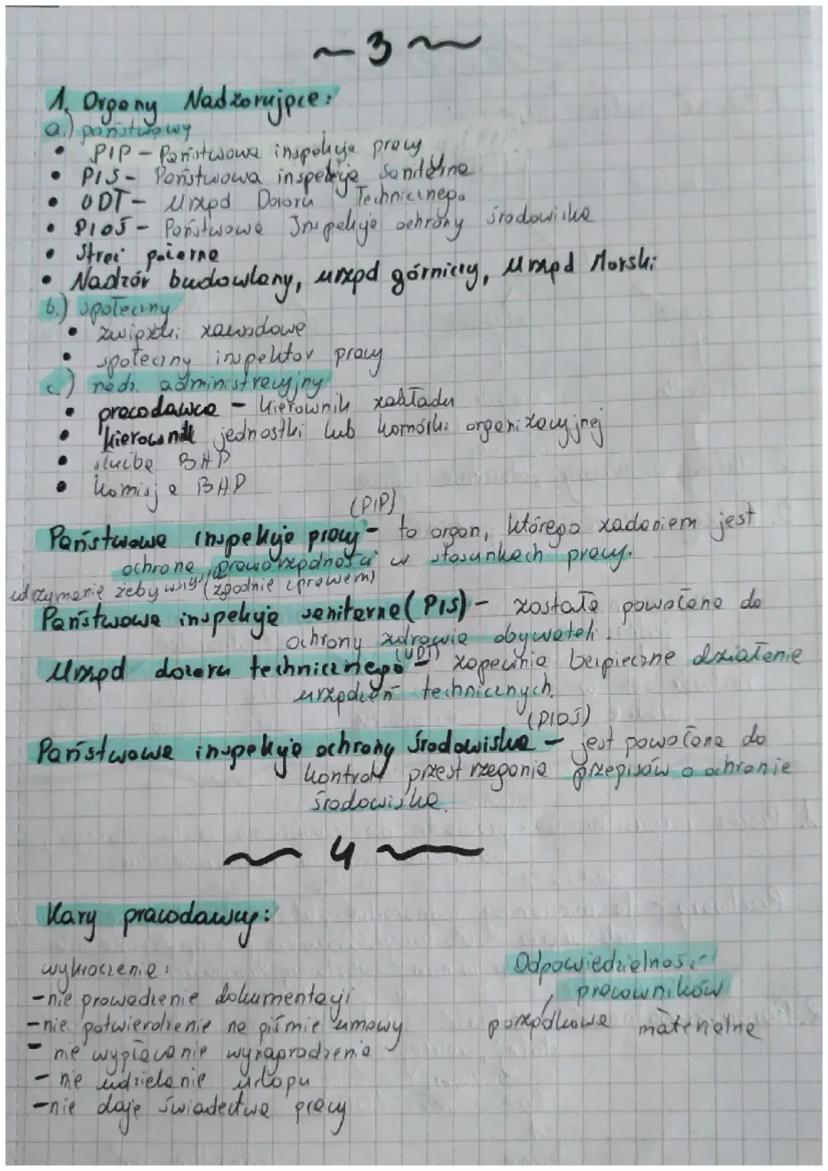 ~3~
1. Organy Nadzorujące:
a.) państwowy
• PIP - Państwowa inspekcja pracy
• PIS - Państwowa inspekcja Sanitarna
• UDT - Urząd Dozoru Technicznego
• PIOŚ - Państwowa Inspekcja ochrony środowiska
• Straż pożarna
• Nadzór budowlany, urząd górniczy, Urząd Morski
b.) społeczny
• związki zawodowe
• społeczny inspektor pracy
c.) nadz. administracyjny
• pracodawca - kierownik zakładu
• kierownik jednostki lub komórki organizacyjnej
• służba BHP
• komisja BHP
(PIP)
Państwowa inspekcja pracy - to organ, którego zadaniem jest
ochrona praworządności w stosunkach pracy.
utrzymanie żeby (zgodnie z prawem)
Państwowa inspekcja sanitarna (PIS) - została powołana do
ochrony zdrowia obywateli.
(UDT)
Urząd dozoru technicznego - zapewnia bezpieczne działanie
urządzeń technicznych.
(PIOŚ)
Państwowa inspekcja ochrony środowiska - jest powołana do
kontroli przestrzegania przepisów o ochronie
środowiska.
~4~
Kary pracodawcy:
wykroczenia:
-nie prowadzenie dokumentacji
-nie potwierdzenie na piśmie umowy
- nie wypłacanie wynagrodzenia
- nie udzielanie urlopu
-nie daje świadectwa pracy
Odpowiedzialność
pracowników
porządkowa materialna